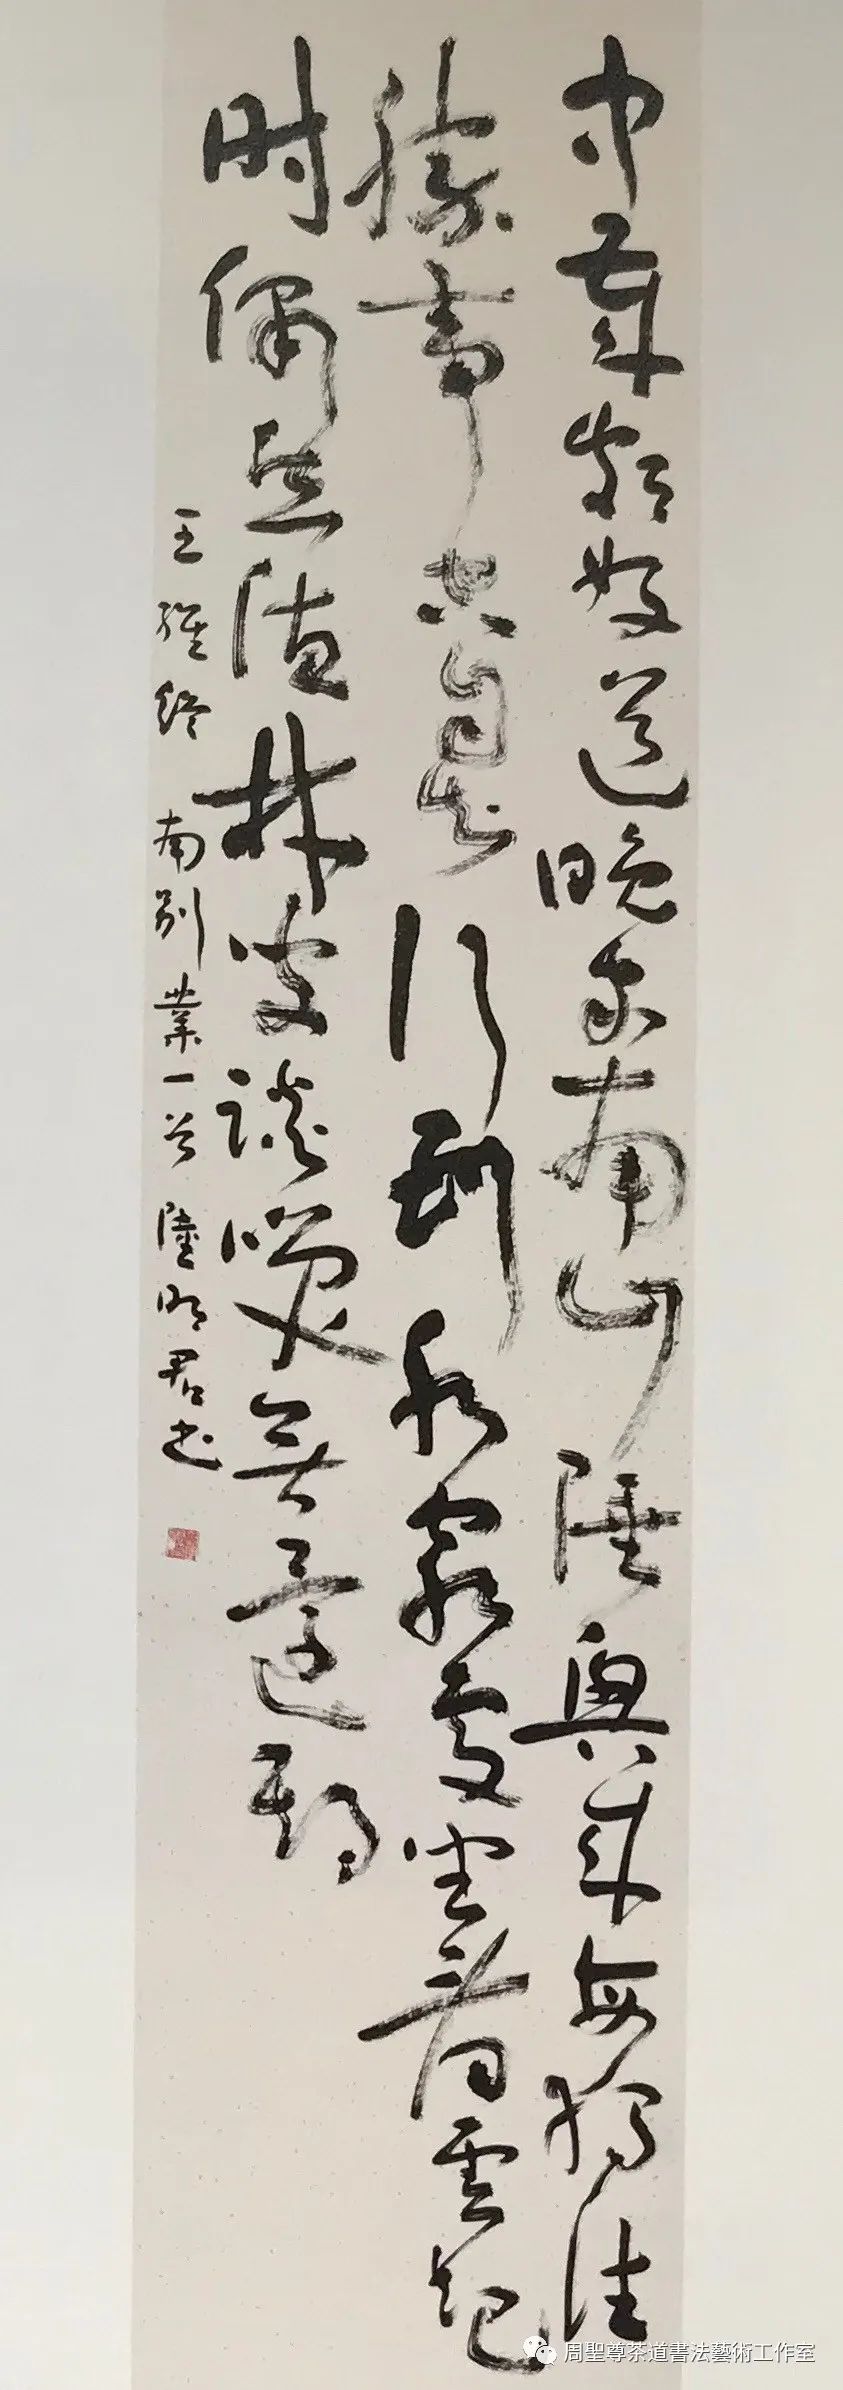 中歲頗好道晚家南山陲興來每獨往
勝事空自知行到水窮處坐看雲起
时偶然值林叟談笑無還期
王維終南別業一首 陸明君书
周聖尊茶道書法藝術工作室